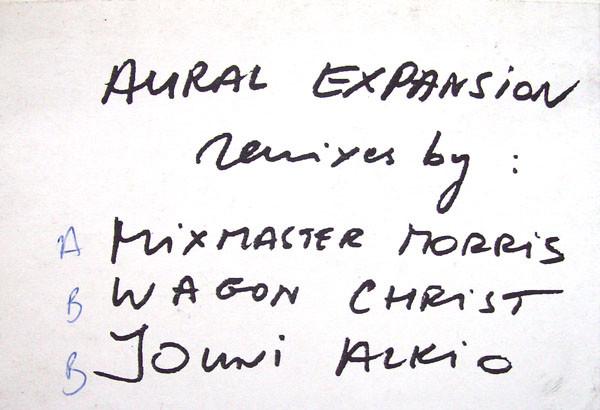 AURAL EXPANSION
remixes by :
A MiXMASTER MORRiS
B WAGON CHRIST
B JOUNi ALKiO